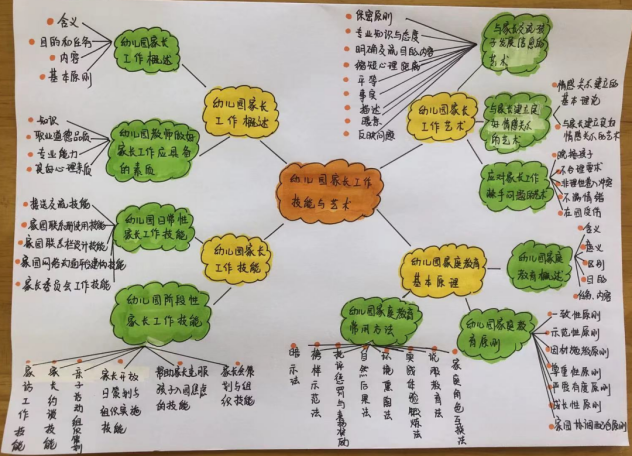 幼儿园家长工作
技能与艺术
幼儿园家长
工作概述
幼儿园家长
工作概述
含义
目的和任务
内容
基本原则
幼儿园教师做好
家长工作应具备
的素质
知识
职业道德品质
专业能力
良好心理素质
幼儿园家长
工作技能
幼儿园日常性
家长工作技能
接送交流技能
家园联系册使用技能
家园联系栏设计技能
家长委员会工作技能
幼儿园阶段性
家长工作技能
家访工作技能
家长约谈技能
家长开放
日策划与
组织实施
技能
帮助家长克服
孩子入园焦虑
的技能
划与组
织技能
幼儿园家长
工作艺术
与家长交流孩
子发展信息的
艺术
保密原则
专业知识与态度
明确交流目的内容
缩短心理距离
平等
事实
描述
反映问题
与家长建立良
好情感关系
的艺术
情感关系建立的
基本理论
与家长建立良好
情感关系的艺术
应对家长工作
棘手问题的艺术
晚接孩子
不合理要求
不满情绪
在园受伤
幼儿园家庭教育
基本原理
幼儿园家庭
教育概述
含义
意义
区别
目的
任务、内容
幼儿园家庭教
育原则
一致性原则
示范性原则
因材施教原则
尊重性原则
严爱有度原则
成长性原则
家园协调配合原则
幼儿园家庭教育
常用方法
暗示法
榜样示范法
自然后果法
环境熏陶法
实践体验锻炼法
说服教育法
家庭角色互换法